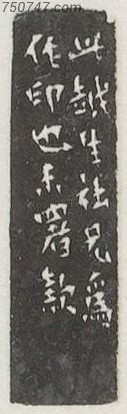 750747.com
此越生社兄為
作印也未署款